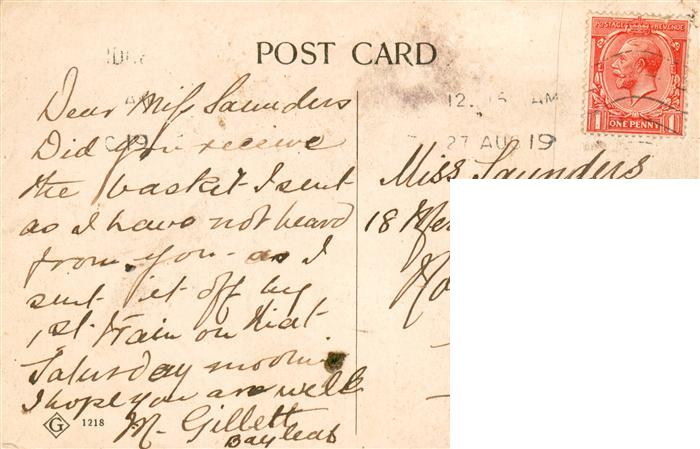 POST CARD
Dear Miss Saunders
Did you receive
the basket I sent
as I have not heard
from you - as I
sent it off by
1st train on that
Saturday morning
I hope you are well
M. Gillett
G 1218
12. 15 AM
27 AUG 19
POSTAGE REVENUE
1 ONE PENNY 1
Miss Saunders
18